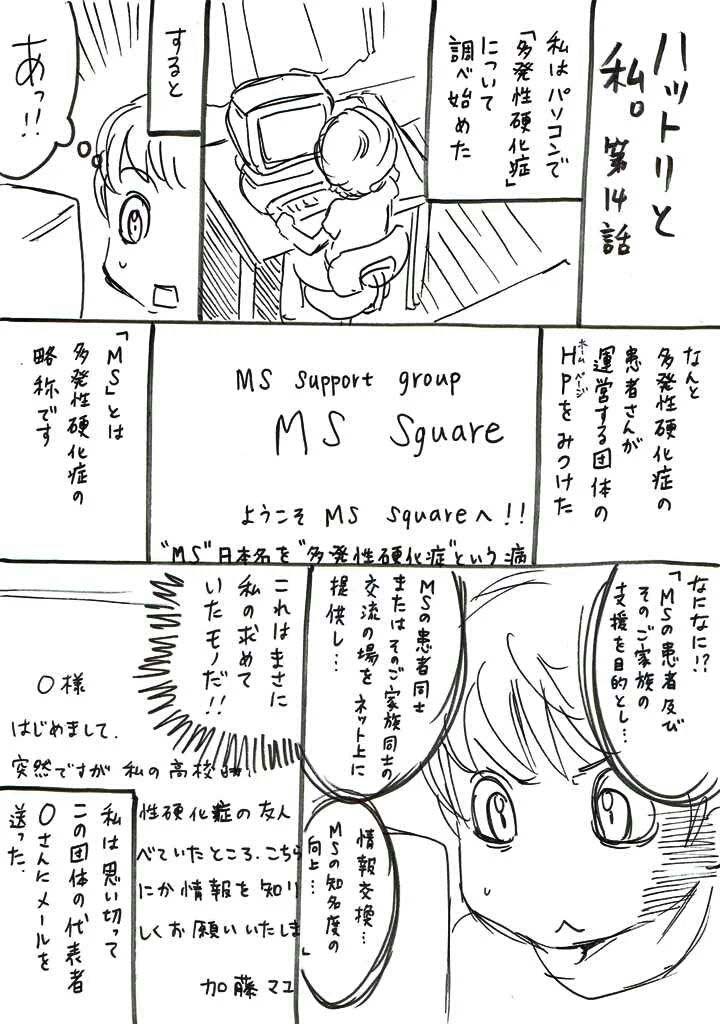 ハットリと
私。第14話
私はパソコンで
「多発性硬化症」
について
調べ始めた
すると
あっ!!
なんと
多発性硬化症の
患者さんが
運営する団体の
HPをみつけた
ホームページ
MS support group
MS Square
ようこそ MS squareへ!!
"MS"日本名を"多発性硬化症"という病
「MS」とは
多発性硬化症の
略称です
なになに!?
「MSの患者及び
そのご家族の
支援を目的とし…
MSの患者同士
またはそのご家族同士の
交流の場をネット上に
提供し…
情報交換…
MSの知名度の
向上…」
これはまさに
私の求めて
いたモノだ!!
O様
はじめまして.
突然ですが私の高校時
性硬化症の友人
べていたところ.こちら
にか情報を知り
しくお願いいたしま
加藤マユ
私は思い切って
この団体の代表者
Oさんにメールを
送った.